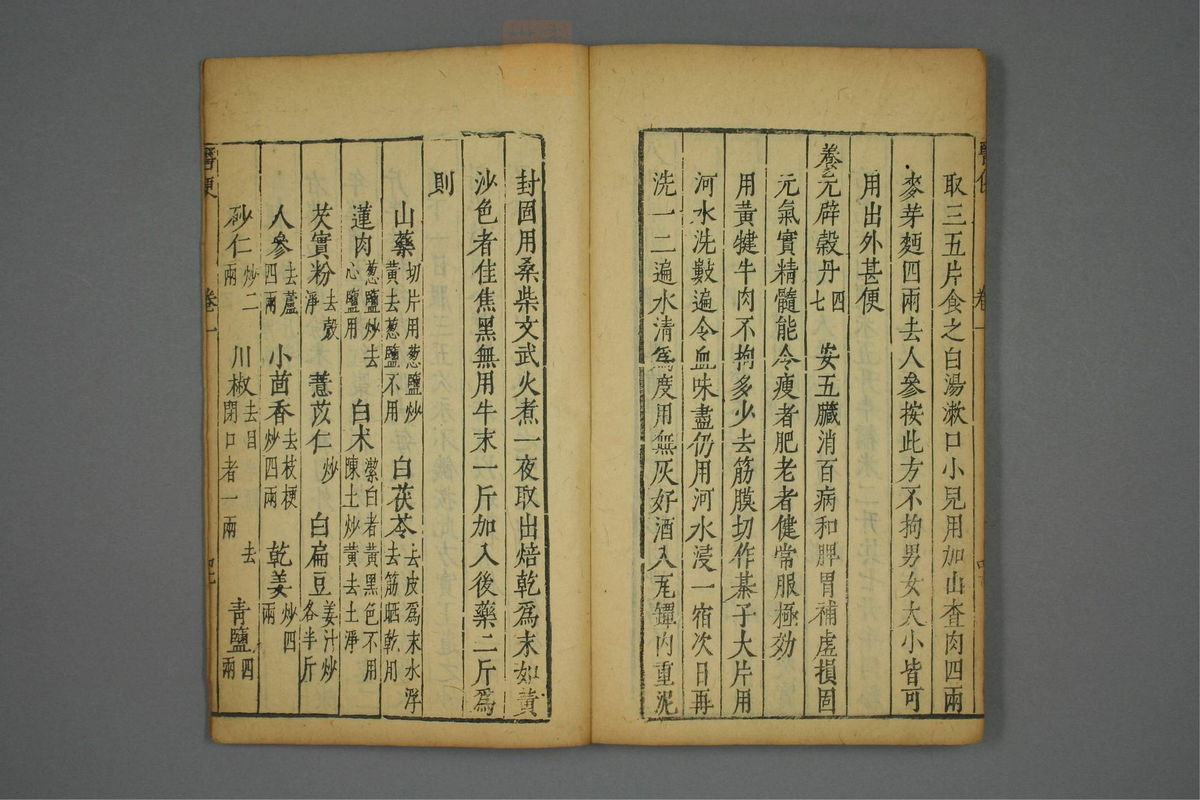 取三五片食之白湯漱口小兒用加山查肉四兩
麥芽麵四兩去人參按此方不拘男女大小皆可
用出外甚便
養元辟穀丹 四七 安五臟消百病和脾胃補虛損固
元氣實精髓能令瘦者肥老者健常服極効
用黃犍牛肉不拘多少去筋膜切作棊子大片用
河水洗數遍令血味盡仍用河水浸一宿次日再
洗一二遍水清爲度用無灰好酒入瓦罈内重泥
封固用桑柴文武火煮一夜取出焙乾爲末如黃
沙色者佳焦黑無用牛末一斤加入後藥二斤爲
則
山藥 切片用葱鹽炒黃去葱鹽不用 白茯苓 去皮爲末水浮去筋晒乾用
蓮肉 葱鹽炒去心鹽用 白术 潔白者黃黑色不用陳土炒黃去土淨
芡實粉 去殼淨 薏苡仁 炒 白扁豆 姜汁炒各半斤
人參 去蘆四兩 小茴香 去枝梗炒四兩 乾姜 炒四兩
砂仁 炒二兩 川椒 去目閉口者一兩去 青鹽 四兩
醫便 卷一